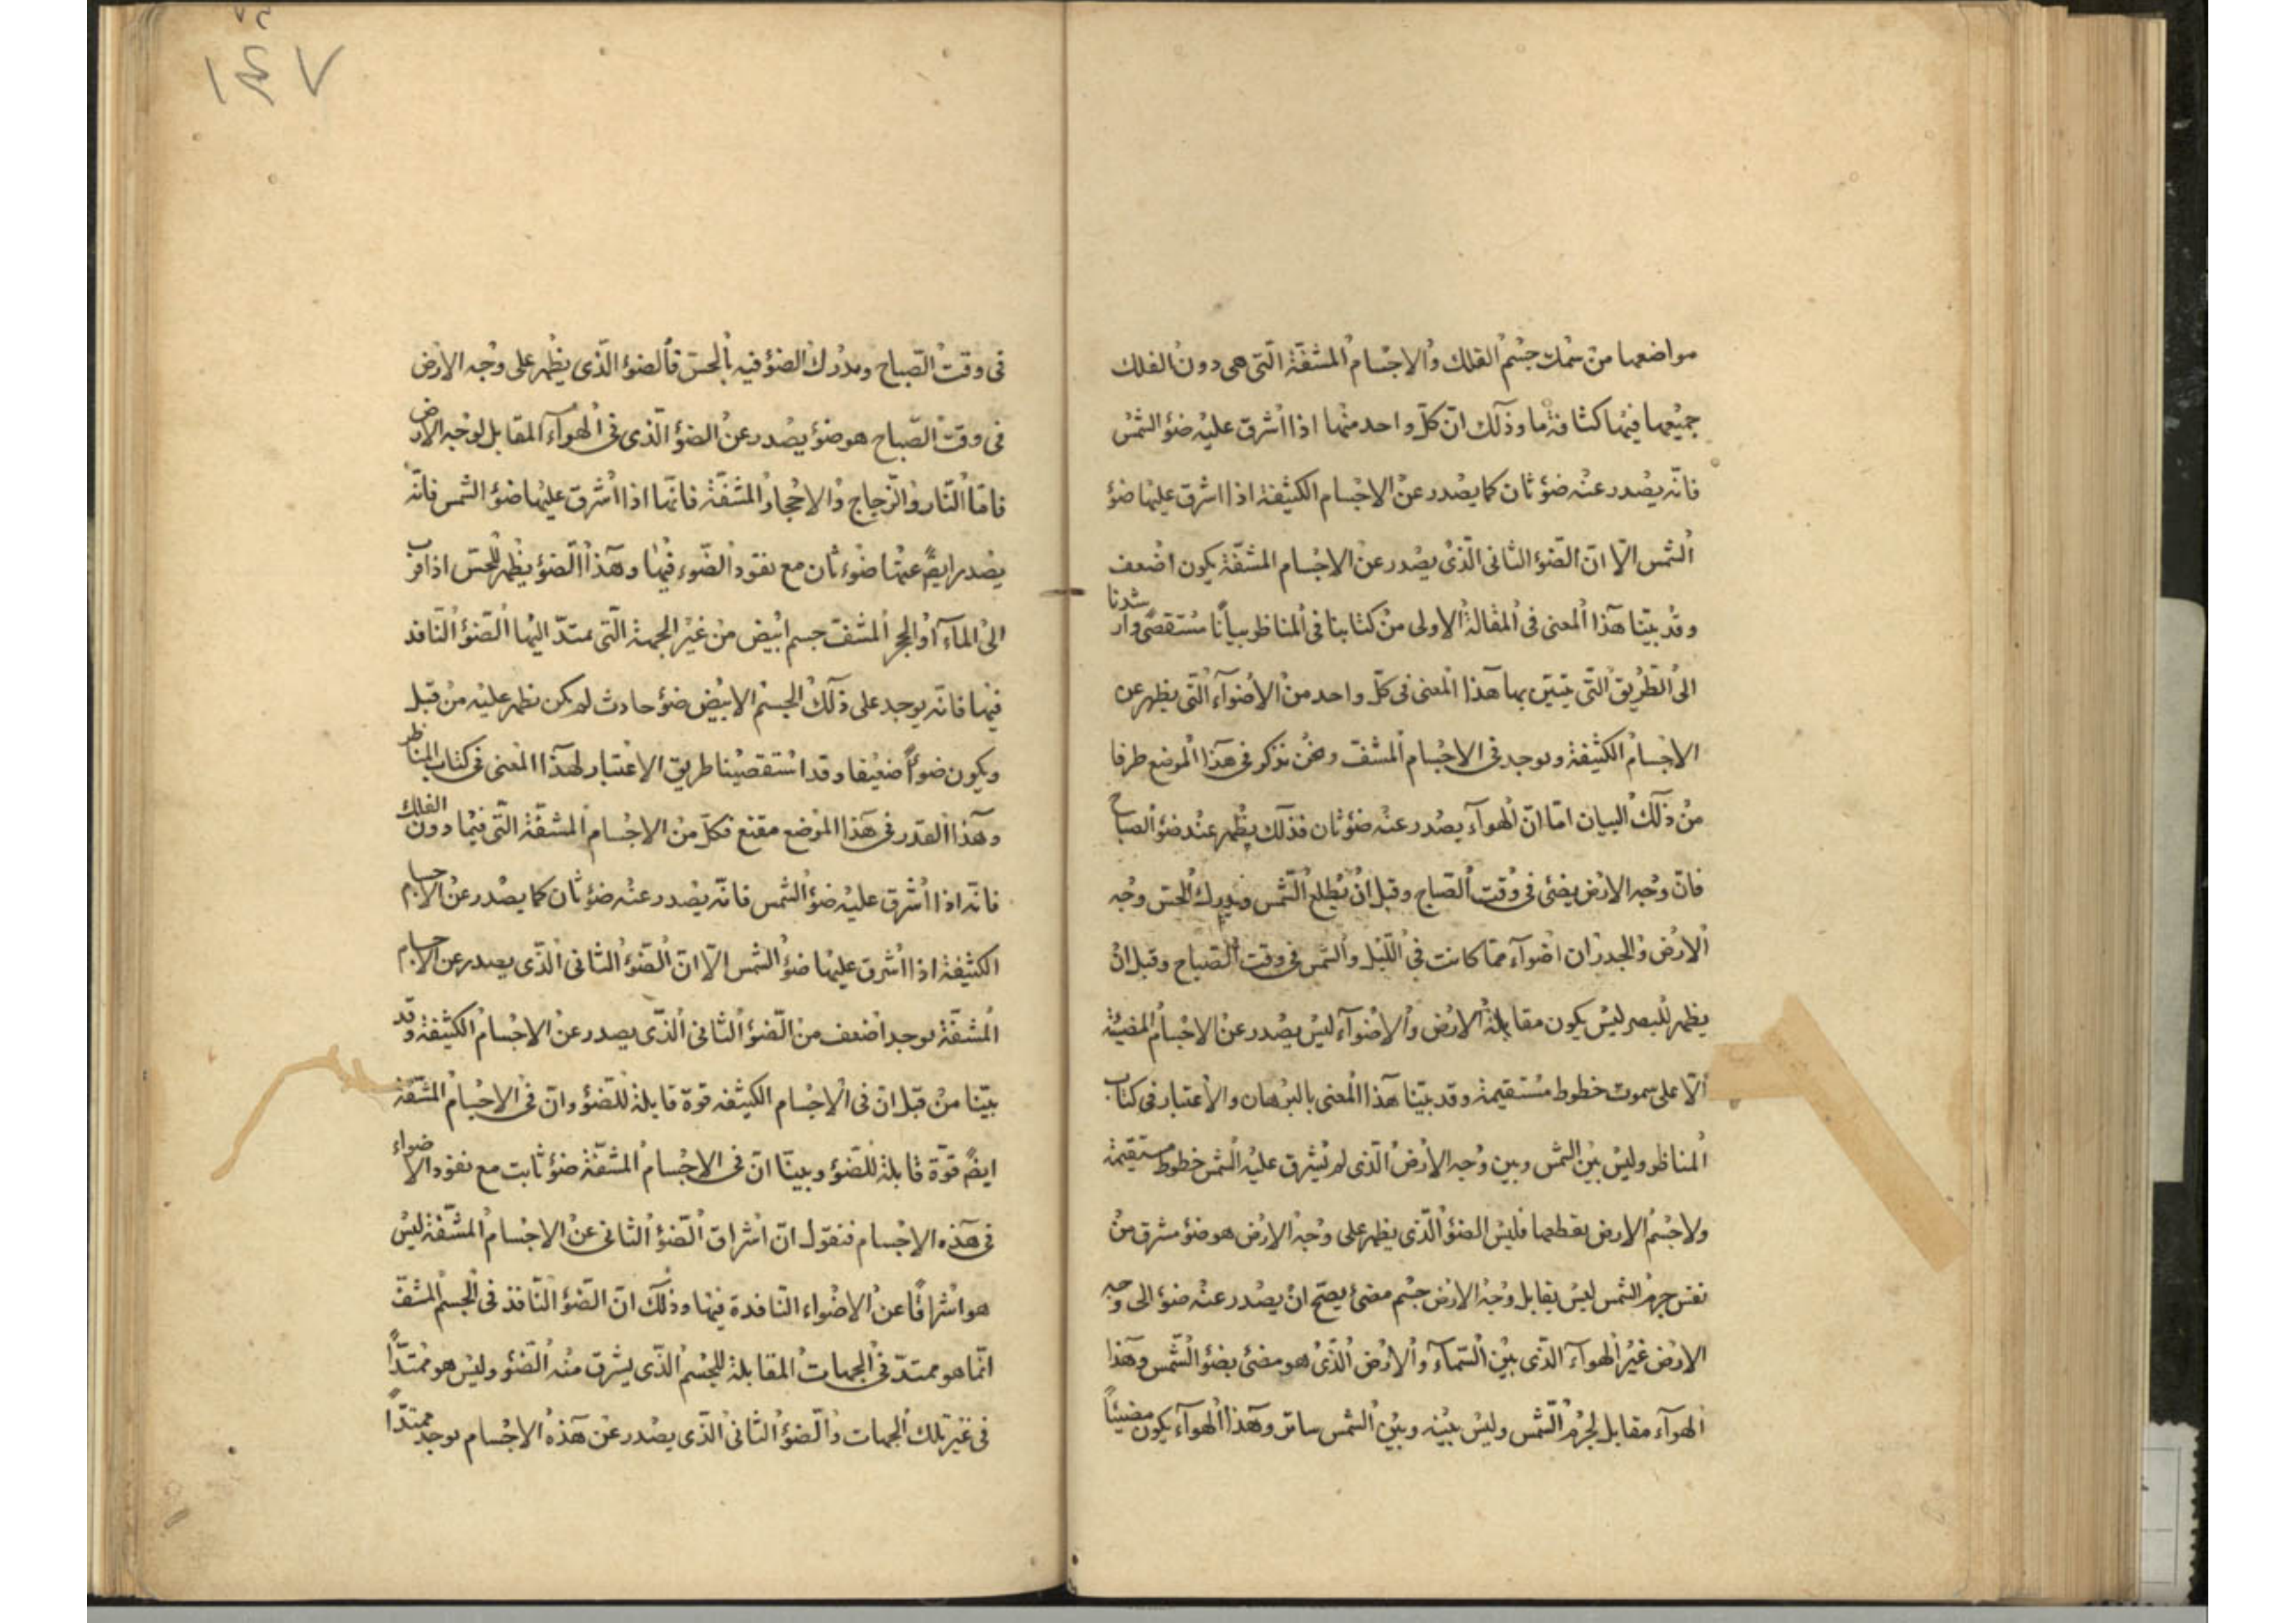 مواضعها من سمك جسم الفلك والاجسام المشفّة الّتى هى دون الفلك
جميعها فيها كثافة ما وذلك انّ كلّ واحد منها اذا اشرق عليه ضؤ الشمس
فانّه يصدر عنه ضؤ ثان كما يصدر عن الاجسام الكثيفة اذا اشرق عليها ضؤ
الشمس الّا انّ الضؤ الثانى الّذى يصدر عن الاجسام المشفّة يكون اضعف
وقد بيّنا هذا المعنى فى المقالة الاولى من كتابنا فى المناظر بياناً مستقصًى وارشدنا
الى الطريق الّتى يتبيّن بها هذا المعنى فى كلّ واحد من الأضوآء الّتى يظهر عن
الاجسام الكثيفة ويوجد فى الاجسام المشفّ ونحن نذكر فى هذا الموضع طرفا
من ذلك البيان امّا انّ الهوآء يصدر عنه ضؤ ثان فذلك يظهر عند ضؤ الصباح
فانّ وجه الارض يضئ فى وقت الصّباح وقبل ان يطلع الشّمس ويدرك الحسّ وجه
الارض والجدران اضوآء ممّا كانت فى اللّيل والشمس فى وقت الصّباح وقبل ان
يظهر للبصر ليس يكون مقابلة الارض والأضوآء ليس يصدر عن الاجسام المضيئة
الّا على سموت خطوط مستقيمة وقد بيّنا هذا المعنى بالبرهان والأعتبار فى كتاب
المناظر وليس بين الشمس وبين وجه الارض الّذى لم تشرق عليه الشمس خطوط مستقيمة
ولاجسم الارض يقطعها فليس الضؤ الّذى يظهر على وجه الارض هو ضؤ مشرق من
نفس جرم الشمس ليس يقابل وجه الارض جسم مضئ يصحّ ان يصدر عنه ضؤ الى وجه
الارض غير الهوآء الّذى بين السّمآء والارض الّذى هو مضئ بضؤ الشّمس وهذا
الهوآء مقابل لجرم الشّمس وليس بينه وبين الشمس ساتر وهذا الهوآء يكون مضيئاً
١٤٧
فى وقت الصّباح ويدرك الضؤ فيه بالحسّ فالضؤ الّذى يظهر على وجه الارض
فى وقت الصّباح هو ضؤ يصدر عن الضؤ الّذى فى الهوآء المقابل لوجه الارض
فامّا النّار والزّجاج والاحجار المشفّة فانّها اذا اشرق عليها ضؤ الشمس فانّه
يصدر ايضً عنها ضوء ثان مع نفوذ الضّوء فيها وهذا الضؤ يظهر للحسّ اذا قرب
الى المآء او الحجر المشفّ جسم ابيض من غير الجهة الّتى يمتدّ اليها الضؤ النّافد
فيها فانّه يوجد على ذلك الجسم الابيض ضؤ حادث لم يكن يظهر عليه من قبل
ويكون ضوأً ضعيفا وقد استقصينا طريق الاعتبار لهذا المعنى فى كتاب المناظر
وهذا القدر فى هذا الموضع مقنع فكلّ من الاجسام المشفّة الّتى فيما دون الفلك
فانّه اذا اشرق عليه ضؤ الشمس فانّه يصدر عنه ضؤ ثان كما يصدر عن الاجسام
الكثيفة اذا اشرق عليها ضؤ الشمس الّا انّ الضؤ الثانى الّذى يصدر عن الاجسام
المشفّة يوجد اضعف من الضؤ الثانى الّذى يصدر عن الاجسام الكثيفة وقد
بيّنا من قبل ان فى الاجسام الكثيفه قوة قابلة للضؤ وانّ فى الاجسام المشفّة
ايضً قوّة قابلة للضؤ وبينّا انّ فى الاجسام المشفّة ضؤ ثابت مع نفوذ الاضواء
فى هذه الاجسام فنقول انّ اشراق الضؤ الثانى عن الاجسام المشفّة ليس
هو اشراقًا عن الاضواء النّافدة فيها وذلك انّ الضؤ النّافذ فى الجسم المشفّ
انّما هو ممتدّ فى الجهات المقابلة للجسم الّذى يشرق منه الضؤ وليس هو ممتدّاً
فى غير تلك الجهات والضؤ الثانى الّذى يصدر عن هذه الاجسام يوجد ممتدّاً